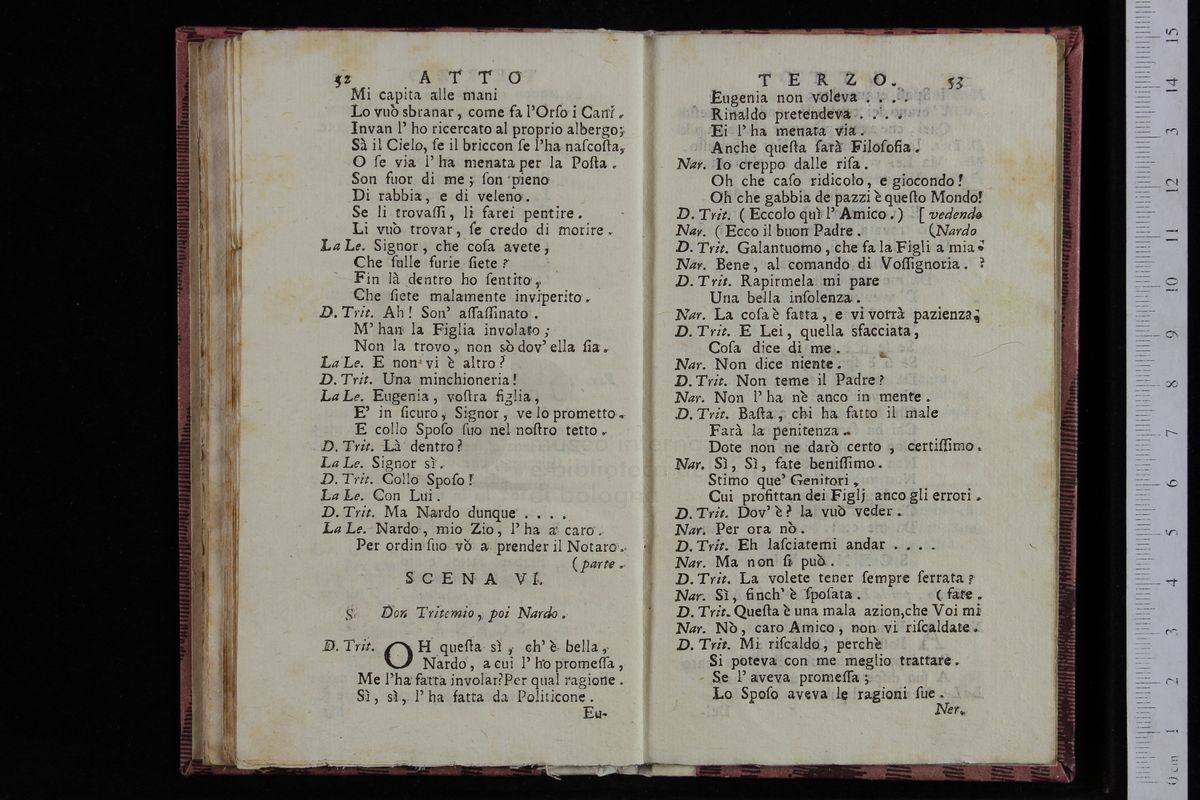 52 ATTO
Mi capita alle mani
Lo vuò sbranar, come fa l'Orſo i Cani.
Invan l' ho ricercato al proprio albergo;
Sà il Cielo, ſe il briccon ſe l'ha naſcoſta,
O ſe via l' ha menata per la Poſta.
Son fuor di me; ſon pieno
Di rabbia, e di veleno.
Se li trovaſſi, li farei pentire.
Li vuò trovar, ſe credo di morire.
La Le. Signor, che coſa avete,
Che ſulle furie ſiete?
Fin là dentro ho ſentito,
Che ſiete malamente inviperito.
D. Trit. Ah! Son' aſſaſſinato.
M' han la Figlia involato;
Non la trovo, non sò dov' ella ſia.
La Le. E non vi è altro?
D. Trit. Una minchioneria!
La Le. Eugenia, voſtra figlia,
E' in ſicuro, Signor, ve lo prometto.
E collo Spoſo ſuo nel noſtro tetto.
D. Trit. Là dentro?
La Le. Signor sì.
D. Trit. Collo Spoſo!
La Le. Con Lui.
D. Trit. Ma Nardo dunque . . . .
La Le. Nardo, mio Zio, l' ha a caro.
Per ordin ſuo vò a prender il Notaro.
(parte.
SCENA VI.
Don Tritemio, poi Nardo.
D. Trit. OH queſta sì, ch' è bella,
Nardo, a cui l' ho promeſſa,
Me l'ha fatta involar? Per qual ragione.
Sì, sì, l' ha fatta da Politicone.
Eu-
TERZO. 53
Eugenia non voleva . . . .
Rinaldo pretendeva . . . .
Ei l' ha menata via.
Anche queſta ſarà Filoſofia.
Nar. Io creppo dalle riſa.
Oh che caſo ridicolo, e giocondo!
Oh che gabbia de pazzi è queſto Mondo!
D. Trit. (Eccolo quì l' Amico.) [vedendo
Nar. (Ecco il buon Padre. (Nardo
D. Trit. Galantuomo, che fa la Figli a mia?
Nar. Bene, al comando di Voſſignoria. ?
D. Trit. Rapirmela mi pare
Una bella inſolenza.
Nar. La coſa è fatta, e vi vorrà pazienza;
D. Trit. E Lei, quella sfacciata,
Coſa dice di me.
Nar. Non dice niente.
D. Trit. Non teme il Padre?
Nar. Non l' ha nè anco in mente.
D. Trit. Baſta, chi ha fatto il male
Farà la penitenza.
Dote non ne darò certo, certiſſimo.
Nar. Sì, Sì, fate beniſſimo.
Stimo que' Genitori,
Cui profittan dei Figlj anco gli errori.
D. Trit. Dov' è? la vuò veder.
Nar. Per ora nò.
D. Trit. Eh laſciatemi andar . . . .
Nar. Ma non ſi può.
D. Trit. La volete tener ſempre ferrata?
Nar. Sì, finch' è ſpoſata. (fate.
D. Trit. Queſta è una mala azion, che Voi mi
Nar. Nò, caro Amico, non vi riſcaldate.
D. Trit. Mi riſcaldo, perchè
Si poteva con me meglio trattare.
Se l' aveva promeſſa;
Lo Spoſo aveva le ragioni ſue.
Ner.